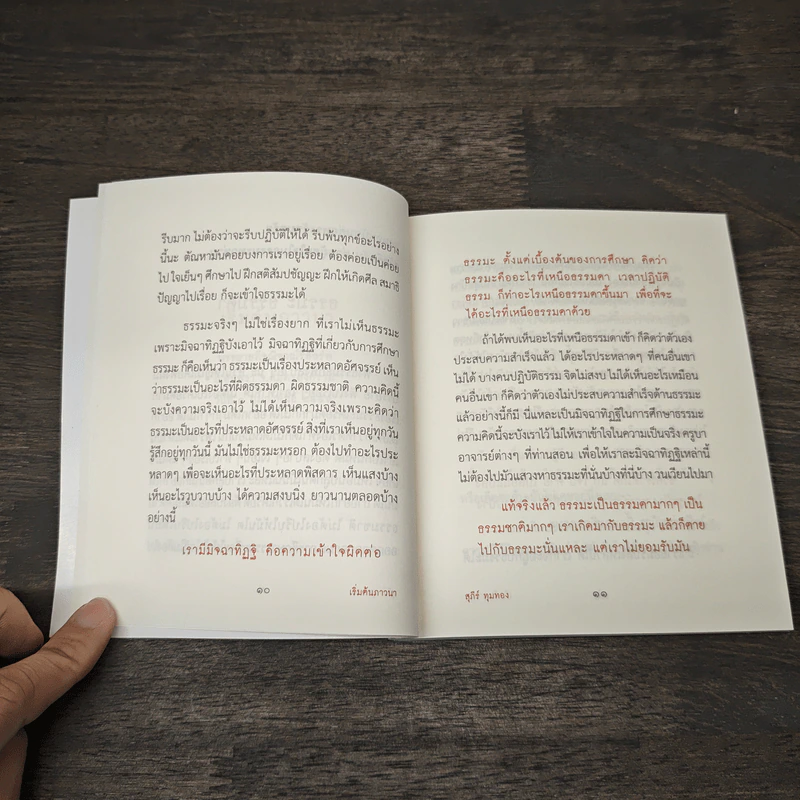 รีบมาก ไม่ต้องว่าจะรีบปฏิบัติให้ได้ รีบพ้นทุกข์อะไรอย่าง
นี้นะ ตัณหามันคอยบงการเราอยู่เรื่อย ต้องค่อยเป็นค่อย
ไป ใจเย็นๆ ศึกษาไป ฝึกสติสัมปชัญญะ ฝึกให้เกิดศีล สมาธิ
ปัญญาไปเรื่อย ก็จะเข้าใจธรรมะได้
ธรรมะจริงๆ ไม่ใช่เรื่องยาก ที่เราไม่เห็นธรรมะ
เพราะมิจฉาทิฏฐิบังเอาไว้ มิจฉาทิฏฐิที่เกี่ยวกับการศึกษา
ธรรมะ ก็คือเห็นว่า ธรรมะเป็นเรื่องประหลาดอัศจรรย์ เห็น
ว่าธรรมะเป็นอะไรที่ผิดธรรมดา ผิดธรรมชาติ ความคิดนี้
จะบังความจริงเอาไว้ ไม่ได้เห็นความจริงเพราะคิดว่า
ธรรมะเป็นอะไรที่ประหลาดอัศจรรย์ สิ่งที่เราเห็นอยู่ทุกวัน
รู้สึกอยู่ทุกวันนี้ มันไม่ใช่ธรรมะหรอก ต้องไปทำอะไรประ
หลาดๆ เพื่อจะเห็นอะไรที่ประหลาดพิสดาร เห็นแสงบ้าง
เห็นอะไรวูบวาบบ้าง ได้ความสงบนิ่ง ยาวนานตลอดบ้าง
อย่างนี้
เรามีมิจฉาทิฏฐิ คือความเข้าใจผิดต่อ
๑๐ เริ่มต้นภาวนา
ธรรมะ ตั้งแต่เบื้องต้นของการศึกษา คิดว่า
ธรรมะคืออะไรที่เหนือธรรมดา เวลาปฏิบัติ
ธรรม ก็ทำอะไรเหนือธรรมดาขึ้นมา เพื่อที่จะ
ได้อะไรที่เหนือธรรมดาด้วย
ถ้าได้พบเห็นอะไรที่เหนือธรรมดาเข้า ก็คิดว่าตัวเอง
ประสบความสำเร็จแล้ว ได้อะไรประหลาดๆ ที่คนอื่นเขา
ไม่ได้ บางคนปฏิบัติธรรม จิตไม่สงบ ไม่ได้เห็นอะไรเหมือน
คนอื่นเขา ก็คิดว่าตัวเองไม่ประสบความสำเร็จด้านธรรมะ
แล้วอย่างนี้ก็มี นี่แหละเป็นมิจฉาทิฏฐิในการศึกษาธรรมะ
ความคิดนี้จะบังเราไว้ ไม่ให้เราเข้าใจในความเป็นจริง ครูบา
อาจารย์ต่างๆ ที่ท่านสอน เพื่อให้เราละมิจฉาทิฏฐิเหล่านี้
ไม่ต้องไปมัวแสวงหาธรรมะที่นั่นบ้างที่นี่บ้าง วนเวียนไปมา
แท้จริงแล้ว ธรรมะเป็นธรรมดามากๆ เป็น
ธรรมชาติมากๆ เราเกิดมากับธรรมะ แล้วก็ตาย
ไปกับธรรมะนั่นแหละ แต่เราไม่ยอมรับมัน
สุภีร์ ทุมทอง ๑๑